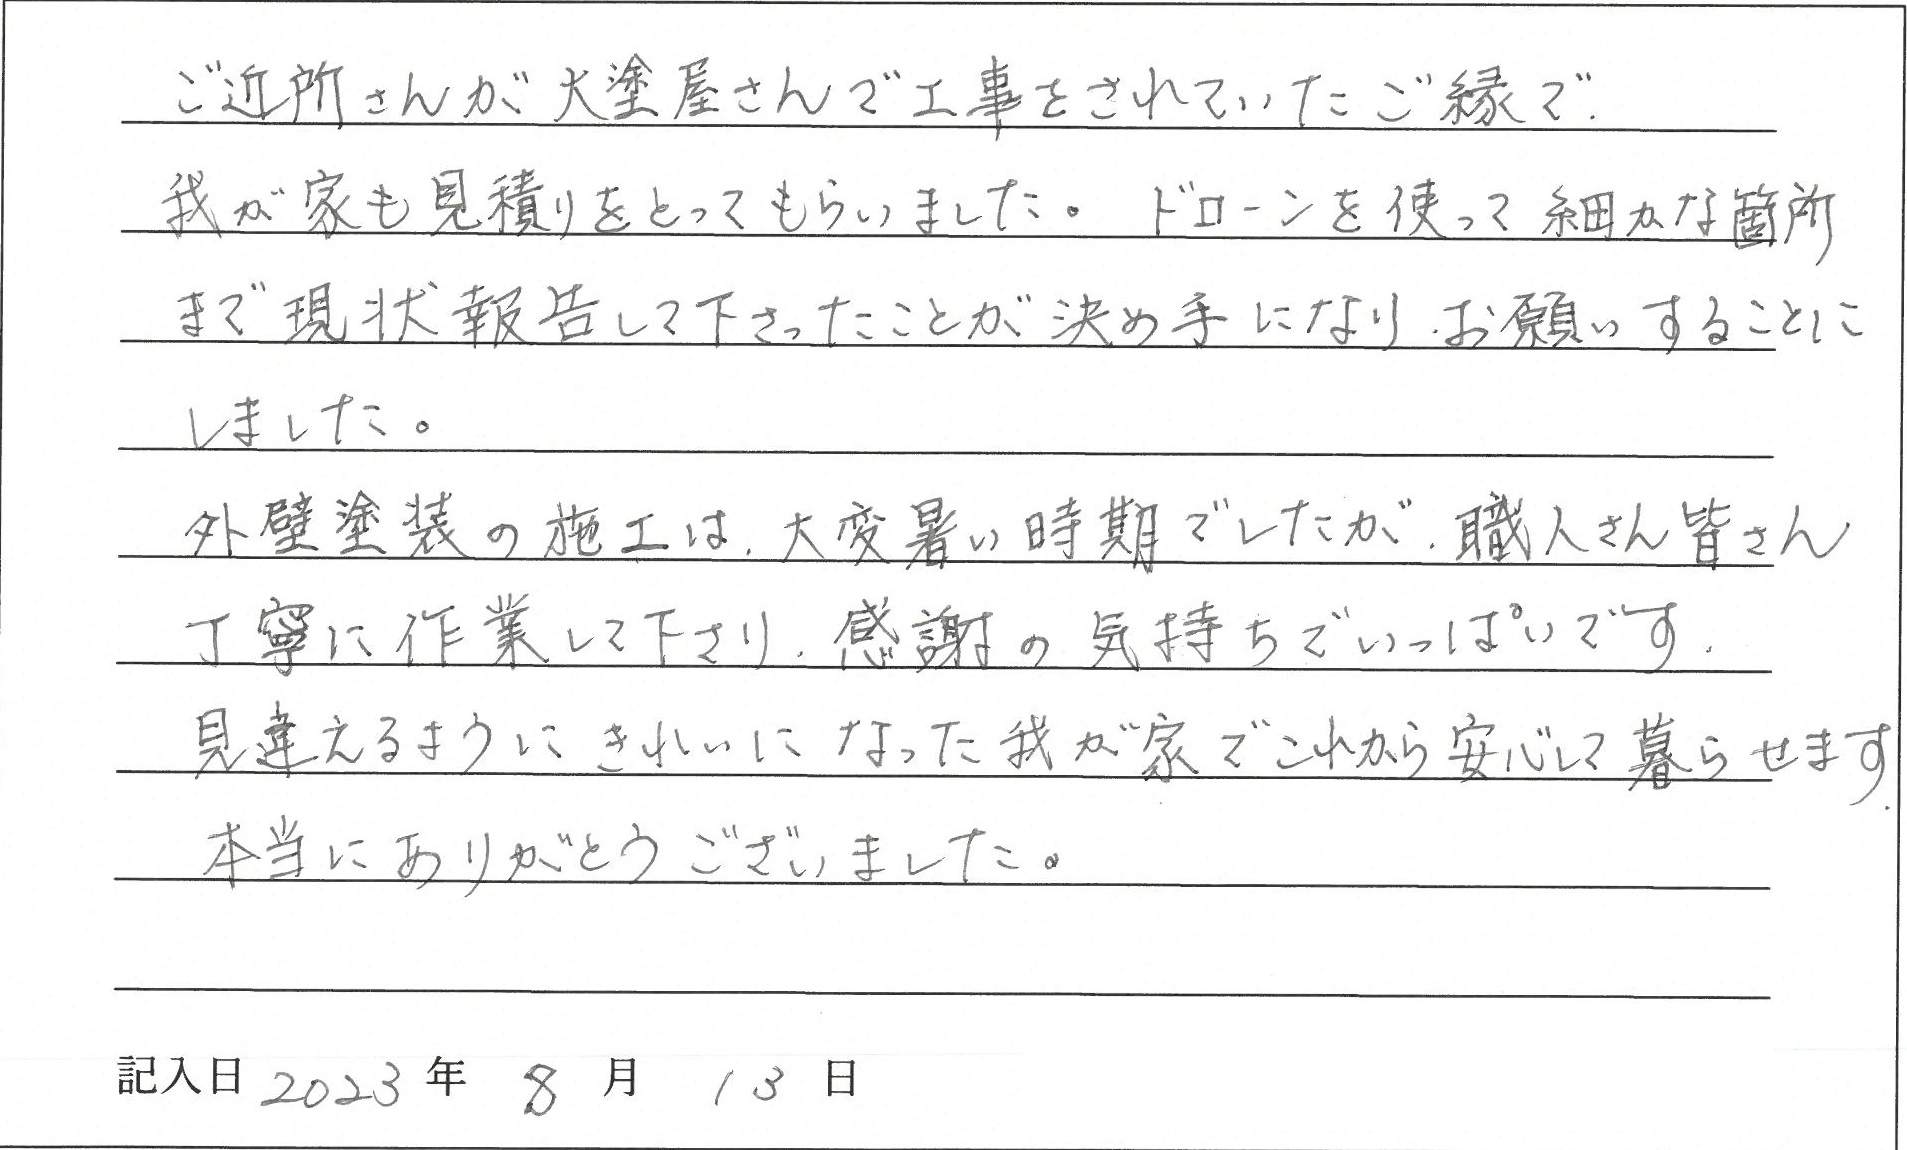 ご近所さんが大塗屋さんで工事をされていたご縁で、
我が家も見積りをとってもらいました。ドローンを使って細かな箇所
まで現状報告して下さったことが決め手になり、お願いすることに
しました。
外壁塗装の施工は、大変暑い時期でしたが、職人さん皆さん
丁寧に作業して下さり、感謝の気持ちでいっぱいです。
見違えるようにきれいになった我が家でこれから安心して暮らせます。
本当にありがとうございました。
記入日 2023 年 8 月 13 日